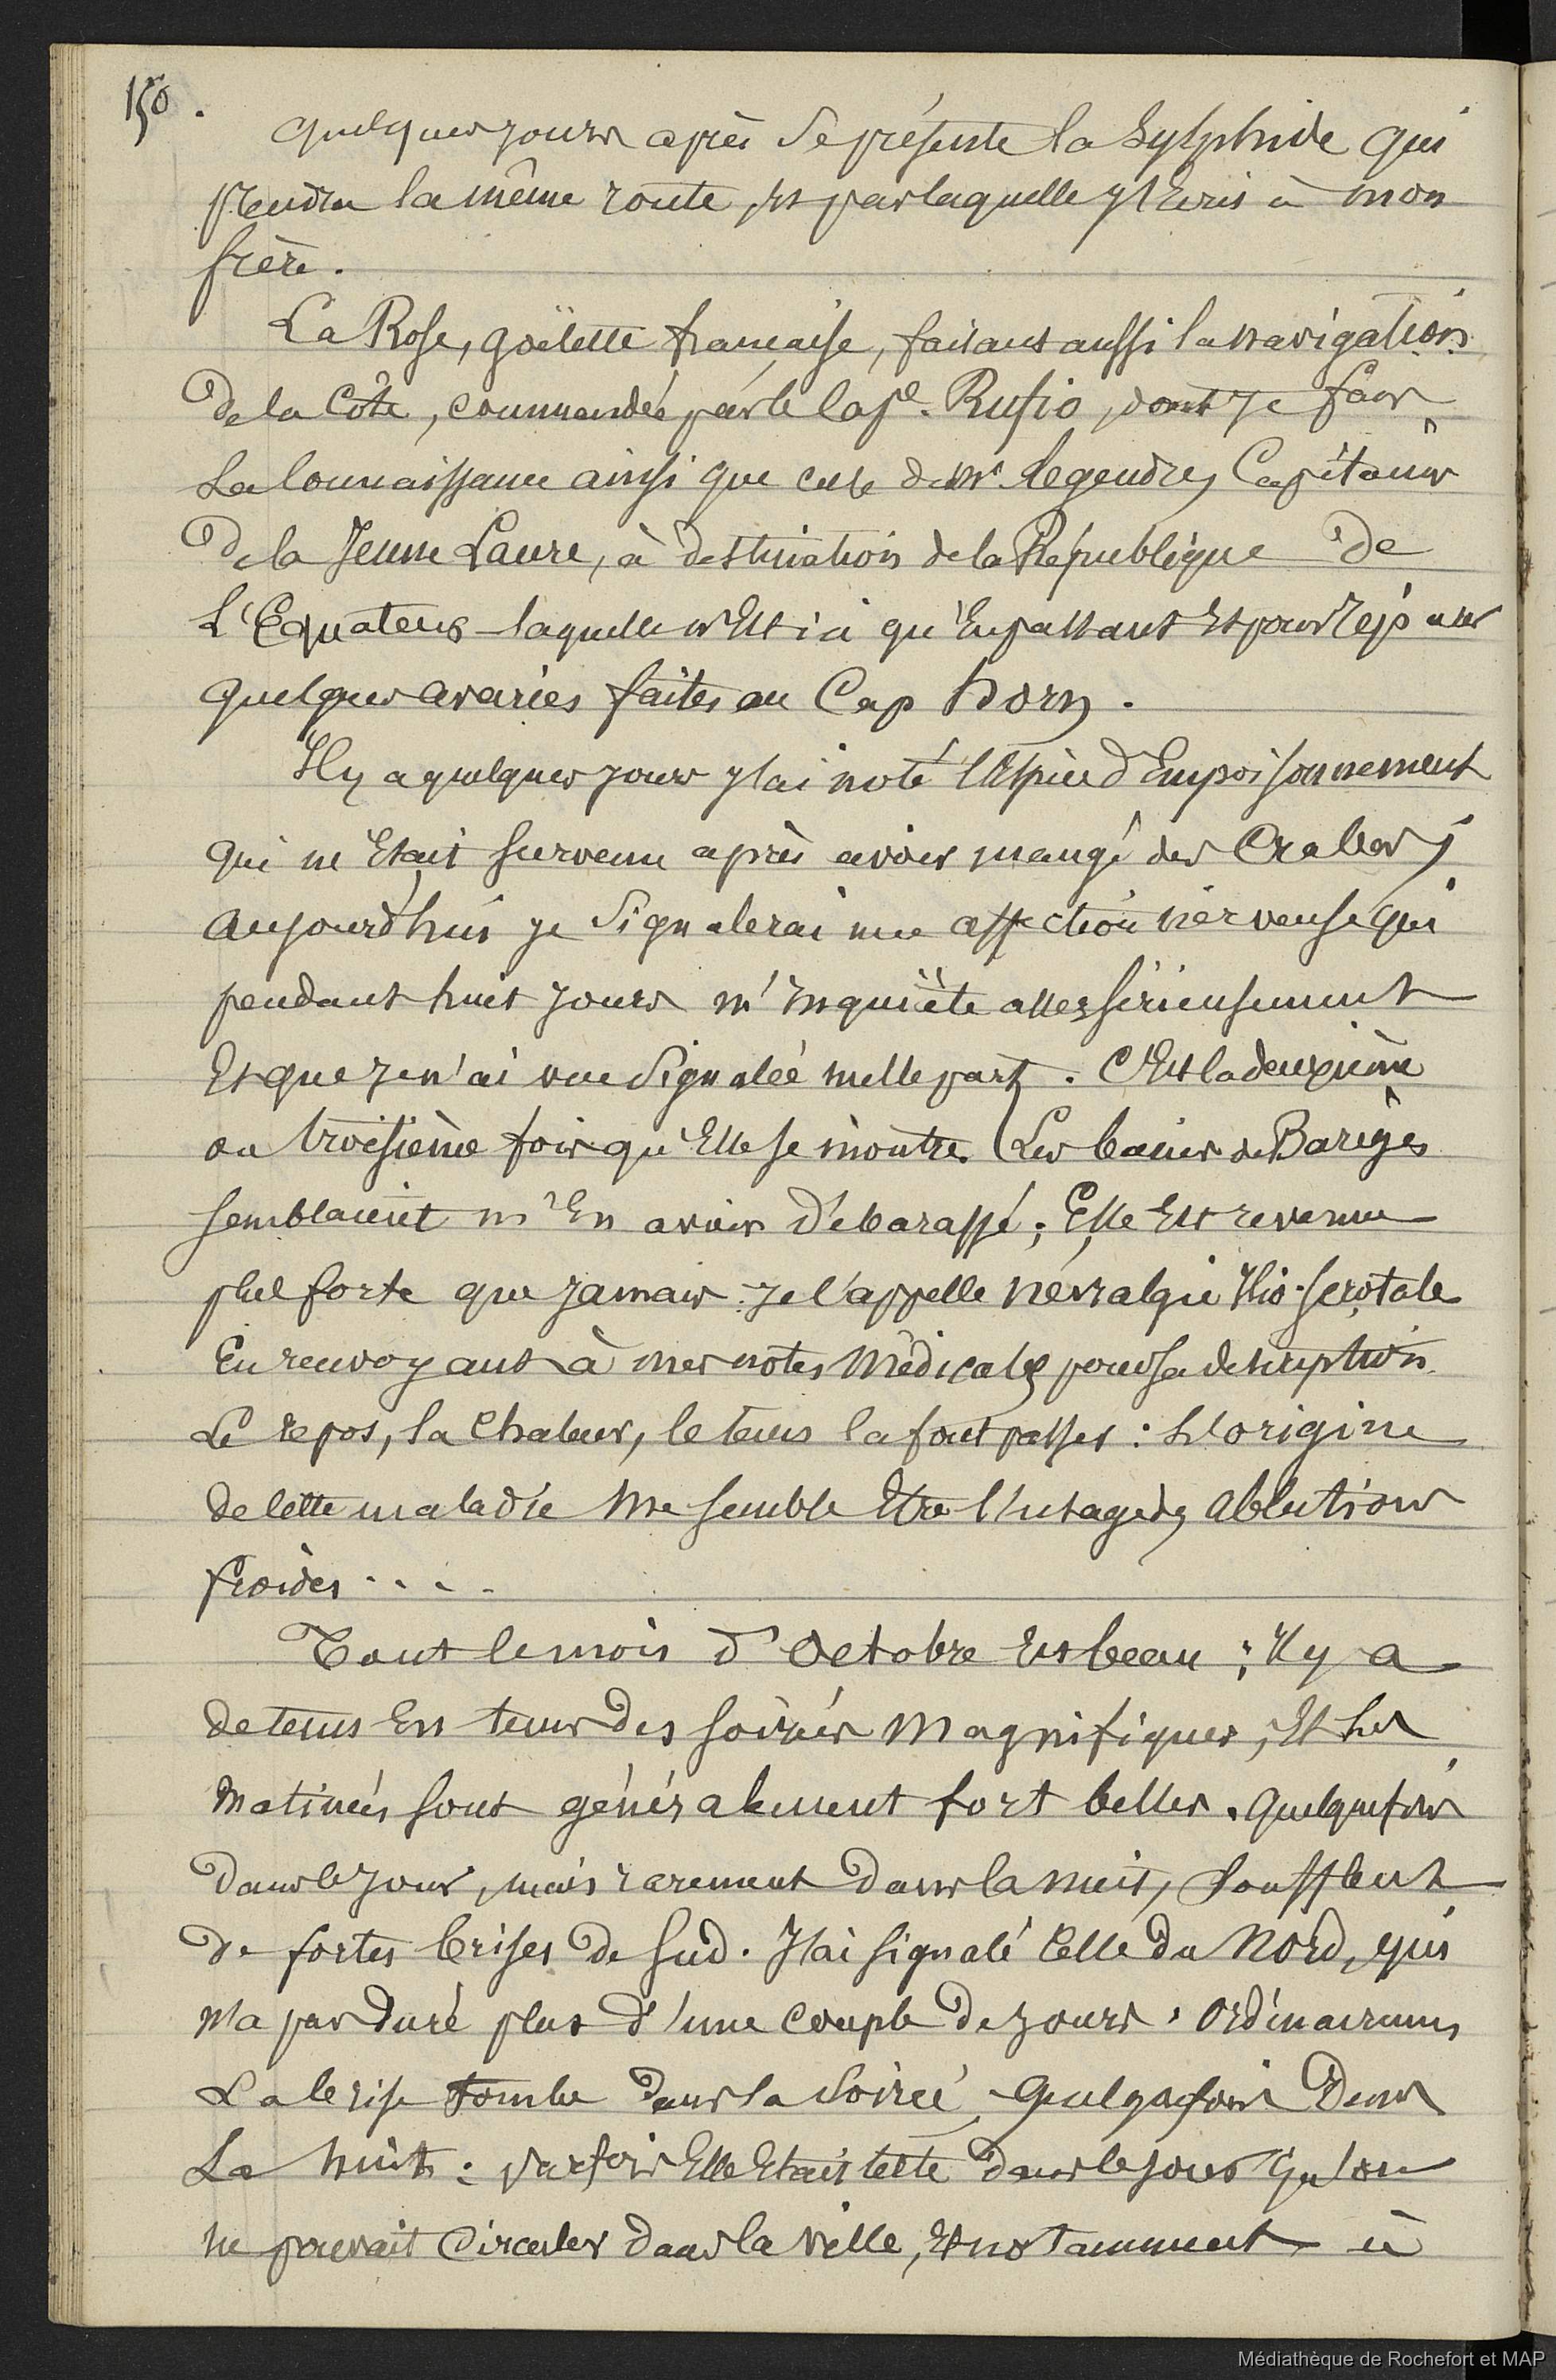 150.
quelques jours après se présente la Sylphide qui
prendra la même route, et par laquelle j'écris à mon
frère.
La Rose, goëlette française, faisant aussi la navigation
de la Côte, commandée par le Cape. Rufio, dont je fais
la connaissance ainsi que celle de Mr. Legendre, Capitaine
de la Jeune Laure, à destination de la République de
L'Equateur laquelle n'est ici qu'en passant et pour réparer
quelques avaries faites au Cap horn.
Il y a quelques jours j'ai noté l'espèce d'Empoisonnement
qui m'était survenu après avoir mangé des Crabes ;
aujourd'hui je signalerai une affection nerveuse qui
pendant huit jours m'inquiète assez sérieusement
Et que je n'ai vue signaleé nulle part. C'est la deuxième
ou troisième fois qu'Elle se montre. Les bains de Barèges
semblaient m'En avoir débarassé ; Elle Est revenue
plus forte que jamais. je l'appelle névralgie Ilio-scrotale
En renvoyant à mes notes Médicales pour sa description.
Le repos, la Chaleur, le tems la font passer : L'origine
de Cette maladie Me semble être l'usage des ablutions
froides....
Tout le mois d'Octobre Est beau ; Il y a
de tems En tems des soirées Magnifiques, Et les
Matinées sont généralement fort belles. Quelquefois
dans le jour, mais rarement dans la nuit, Soufflent
de fortes brises de Sud. J'ai signalé Celle du Nord, qui
n'a pas duré plus d'une Couple de jours. Ordinairement
La brise tombe dans la Soirée, Quelquefois Dans
La Nuit : parfois Elle Etait telle dans le jour qu'on
ne pouvait Circuler dans la ville, Et notamment à
Médiathèque de Rochefort et MAP